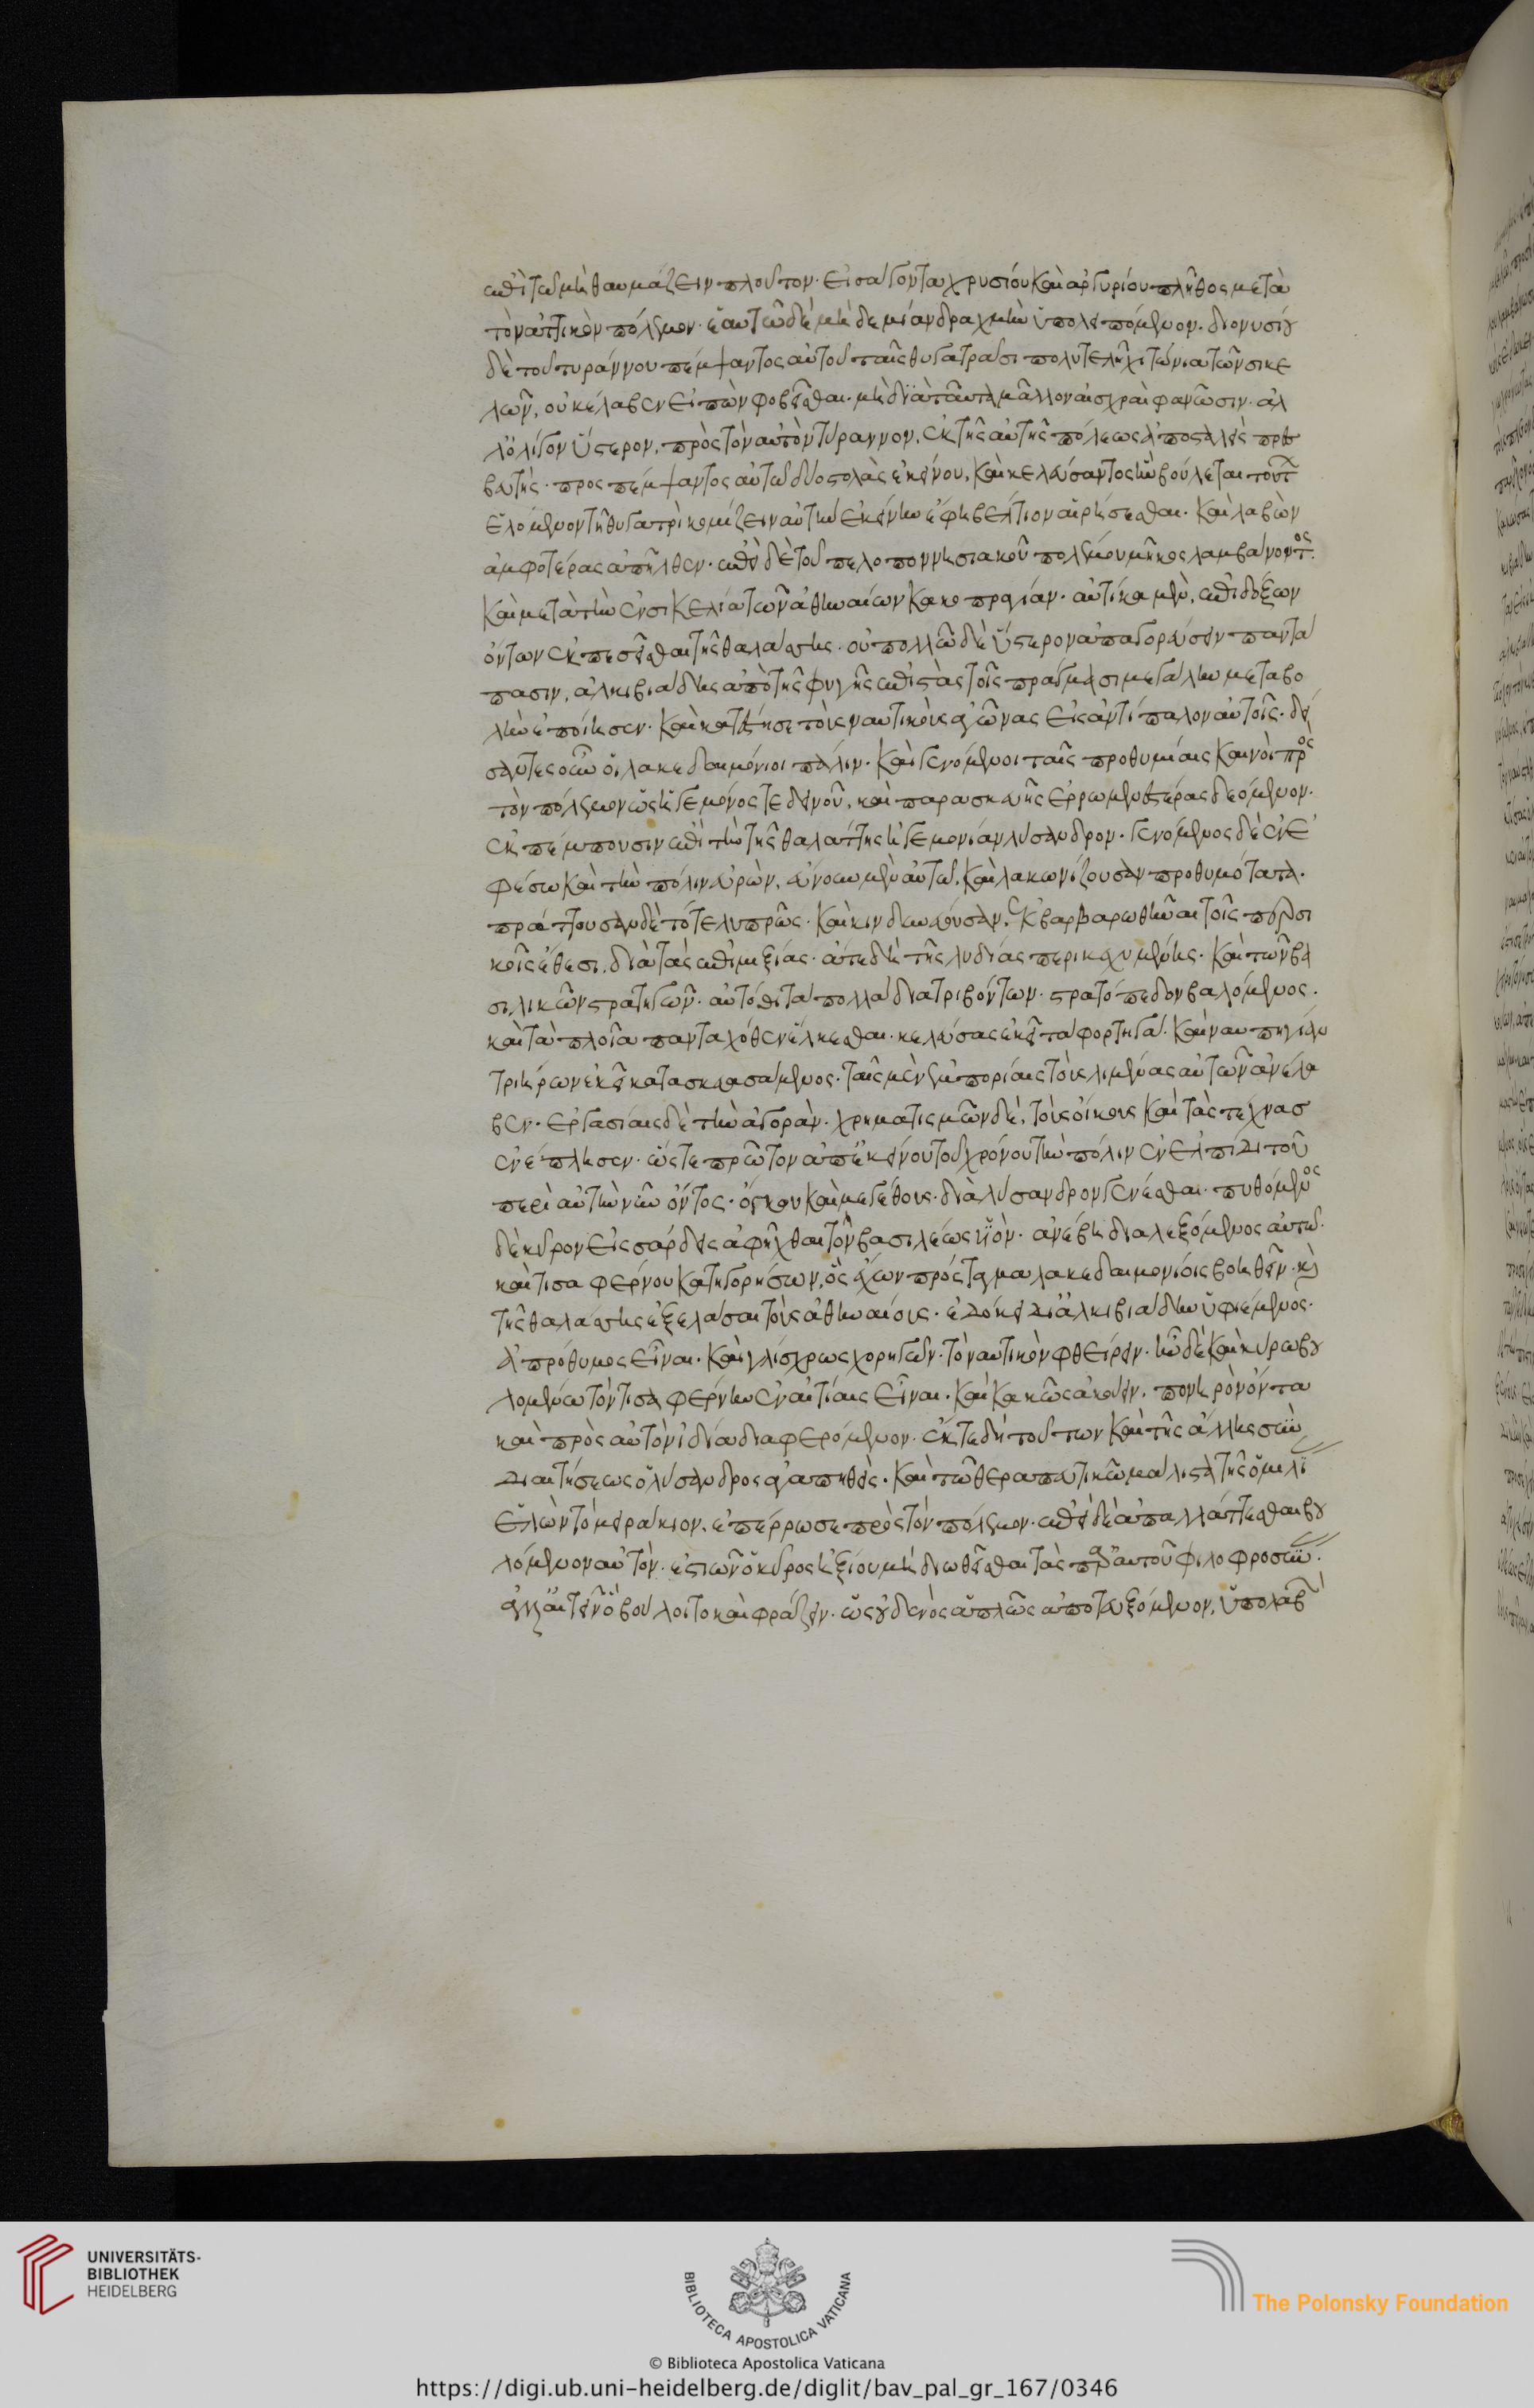 ἐπὶ τῷ μὴ θαυμάζειν πλοῦτον· εἰσάγοντα χρυσίου καὶ ἀργυρίου πλῆθος μετὰ
τὸν ἀττικὸν πόλεμον· ἑαυτῶ δὲ μὴ δὲ μίαν δραχμὴν ὑπολειπόμενον. διονυσίου
δὲ τοῦ τυράννου πέμψαντος αὐτοῦ ταῖς θυγατράσι πολυτελῆ χιτώνια τῶν σικε
λῶν, οὐκ ἔλαβεν εἰπὼν φοβεῖσθαι· μὴ διὰ ταῦτα μᾶλλον αἰσχραὶ φανῶσιν. ἀλ
λ' ὀλίγον ὕστερον, πρὸς τὸν αὐτὸν τύραννον, ἐκ τῆς αὐτῆς πόλεως ἀποσταλεὶς πρεσ
βευτής· προσπέμψαντος αὐτῷ δύο στολὰς ἐκείνου, καὶ κελεύσαντος ἣν βούλεται τούτων
ἑλόμενον τῆ θυγατρὶ κομίζειν αὐτὴν ἐκείνην ἔφη βέλτιον αἱρήσεσθαι. καὶ λαβὼν
ἀμφοτέρας ἀπῆλθεν. ἐπεὶ δὲ τοῦ πελοποννησιακοῦ πολέμου μῆκος λαμβάνοντος.
καὶ μετὰ τὴν ἐν σικελία τῶν ἀθηναίων κακοπραγίαν. αὐτίκα μὲν, ἐπιδόξων
ὄντων ἐκπεσεῖσθαι τῆς θαλάσσης. οὐ πολλῶ δὲ ὕστερον ἀπαγορεύσειν παντά
πασιν, ἀλκιβιάδης ἀπὸ τῆς φυγῆς ἐπιστὰς τοῖς πράγμασι μεγάλην μεταβο
λὴν ἐποίησεν. καὶ κατέστησε τοὺς ναυτικοὺς ἀγῶνας εἰς ἀντίπαλον αὐτοῖς. δεί
σαντες οὖν οἱ λακεδαιμόνιοι πάλιν. καὶ γενόμενοι ταῖς προθυμίαις καινοὶ πρὸς
τὸν πόλεμον ὡς ἡγεμόνος τε δεινοῦ, καὶ παρασκευῆς ἐρρωμενεστέρας δεόμενον.
ἐκπέμπουσιν ἐπὶ τὴν τῆς θαλάττης ἡγεμονίαν λύσανδρον. γενόμενος δὲ ἐν ἐ
φέσω καὶ τὴν πόλιν εὑρὼν, εὔνουν μὲν αὐτῷ, καὶ λακωνίζουσαν προθυμότατα.
πράττουσαν δὲ τότε λυπρῶς. καὶ κινδυνεύουσαν, ἐκβαρβαρωθῆναι τοῖς περσι
κοῖς ἔθεσι, διὰ τὰς ἐπιμιξίας. ἅτε δὴ τῆς λυδίας περικεχυμένης. καὶ τῶν βα
σιλικῶν στρατηγῶν. αὐτόθι τὰ πολλὰ διατριβόντων. στρατόπεδον βαλόμενος.
καὶ τὰ πλοῖα πανταχόθεν ἕλκεσθαι. κελεύσας ἐκεῖ τὰ φορτηγά. καὶ ναυπηγίαν
τριήρων ἐκεῖ κατασκευασάμενος. ταῖς μὲν ἐμπορίαις τοὺς λιμένας αὐτῶν ἀνέλα
βεν. ἐργασίαις δὲ τὴν ἀγορὰν. χρηματισμῶν δέ, τοὺς οἴκους καὶ τὰς τέχνας
ἐνέπλησεν. ὥστε πρῶτον ἀπ' ἐκείνου τοῦ χρόνου τὴν πόλιν ἐν ἐλπίδι τοῦ
περὶ αὐτὴν νῦν ὄντος. ὄγκου καὶ μεγέθους. διὰ λύσανδρον γενέσθαι. πυθόμενος
δὲ κῦρον εἰς σάρδεις ἀφῆχθαι τὸν βασιλέως υἱὸν. ἀνέβη διαλεξόμενος αὐτῷ.
καὶ τισαφέρνου κατηγορήσων, ὃς ἔχων πρόσταγμα λακεδαιμονίοις βοηθεῖν. καὶ
τῆς θαλάσσης ἐξελάσαι τοὺς ἀθηναίους. ἐδόκει δι' ἀλκιβιάδην ὑφιέμενος.
ἀπρόθυμος εἶναι. καὶ γλίσχρως χορηγῶν. τὸ ναυτικὸν φθείρειν. ἦν δὲ καὶ κύρω βου
λομένω τὸν τισαφέρνην ἐν αἰτίαις εἶναι. καὶ κακῶς ἀκούειν. πονηρὸν ὄντα
καὶ πρὸς αὐτὸν ἰδία διαφερόμενον. ἔκ τε δὴ τούτων καὶ τῆς ἄλλης συν
διαιτήσεως ὁ λύσανδρος ἀγαπηθεὶς. καὶ τῶ θεραπευτικῶ μάλιστα τῆς ὁμιλί
ἑλὼν τὸ μειράκιον, ἐπέρρωσε πρὸς τὸν πόλεμον. ἐπεὶ δὲ ἀπαλλάττεσθαι βου
λόμενον αὐτὸν. ἑστιῶν ὁ κῦρος ἠξίου μὴ διωθεῖσθαι τὰς παρ' αὐτοῦ φιλοφροσύν.
ἀλλ' αἰτεῖν ὃ βούλοιτο καὶ φράζειν. ὡς οὐδενὸς ἁπλῶς ἀποτευξόμενον, ὑπολαβὼν
UNIVERSITÄTS-
BIBLIOTHEK
HEIDELBERG
BIBLIOTECA APOSTOLICA VATICANA
The Polonsky Foundation
© Biblioteca Apostolica Vaticana
https://digi.ub.uni-heidelberg.de/diglit/bav_pal_gr_167/0346